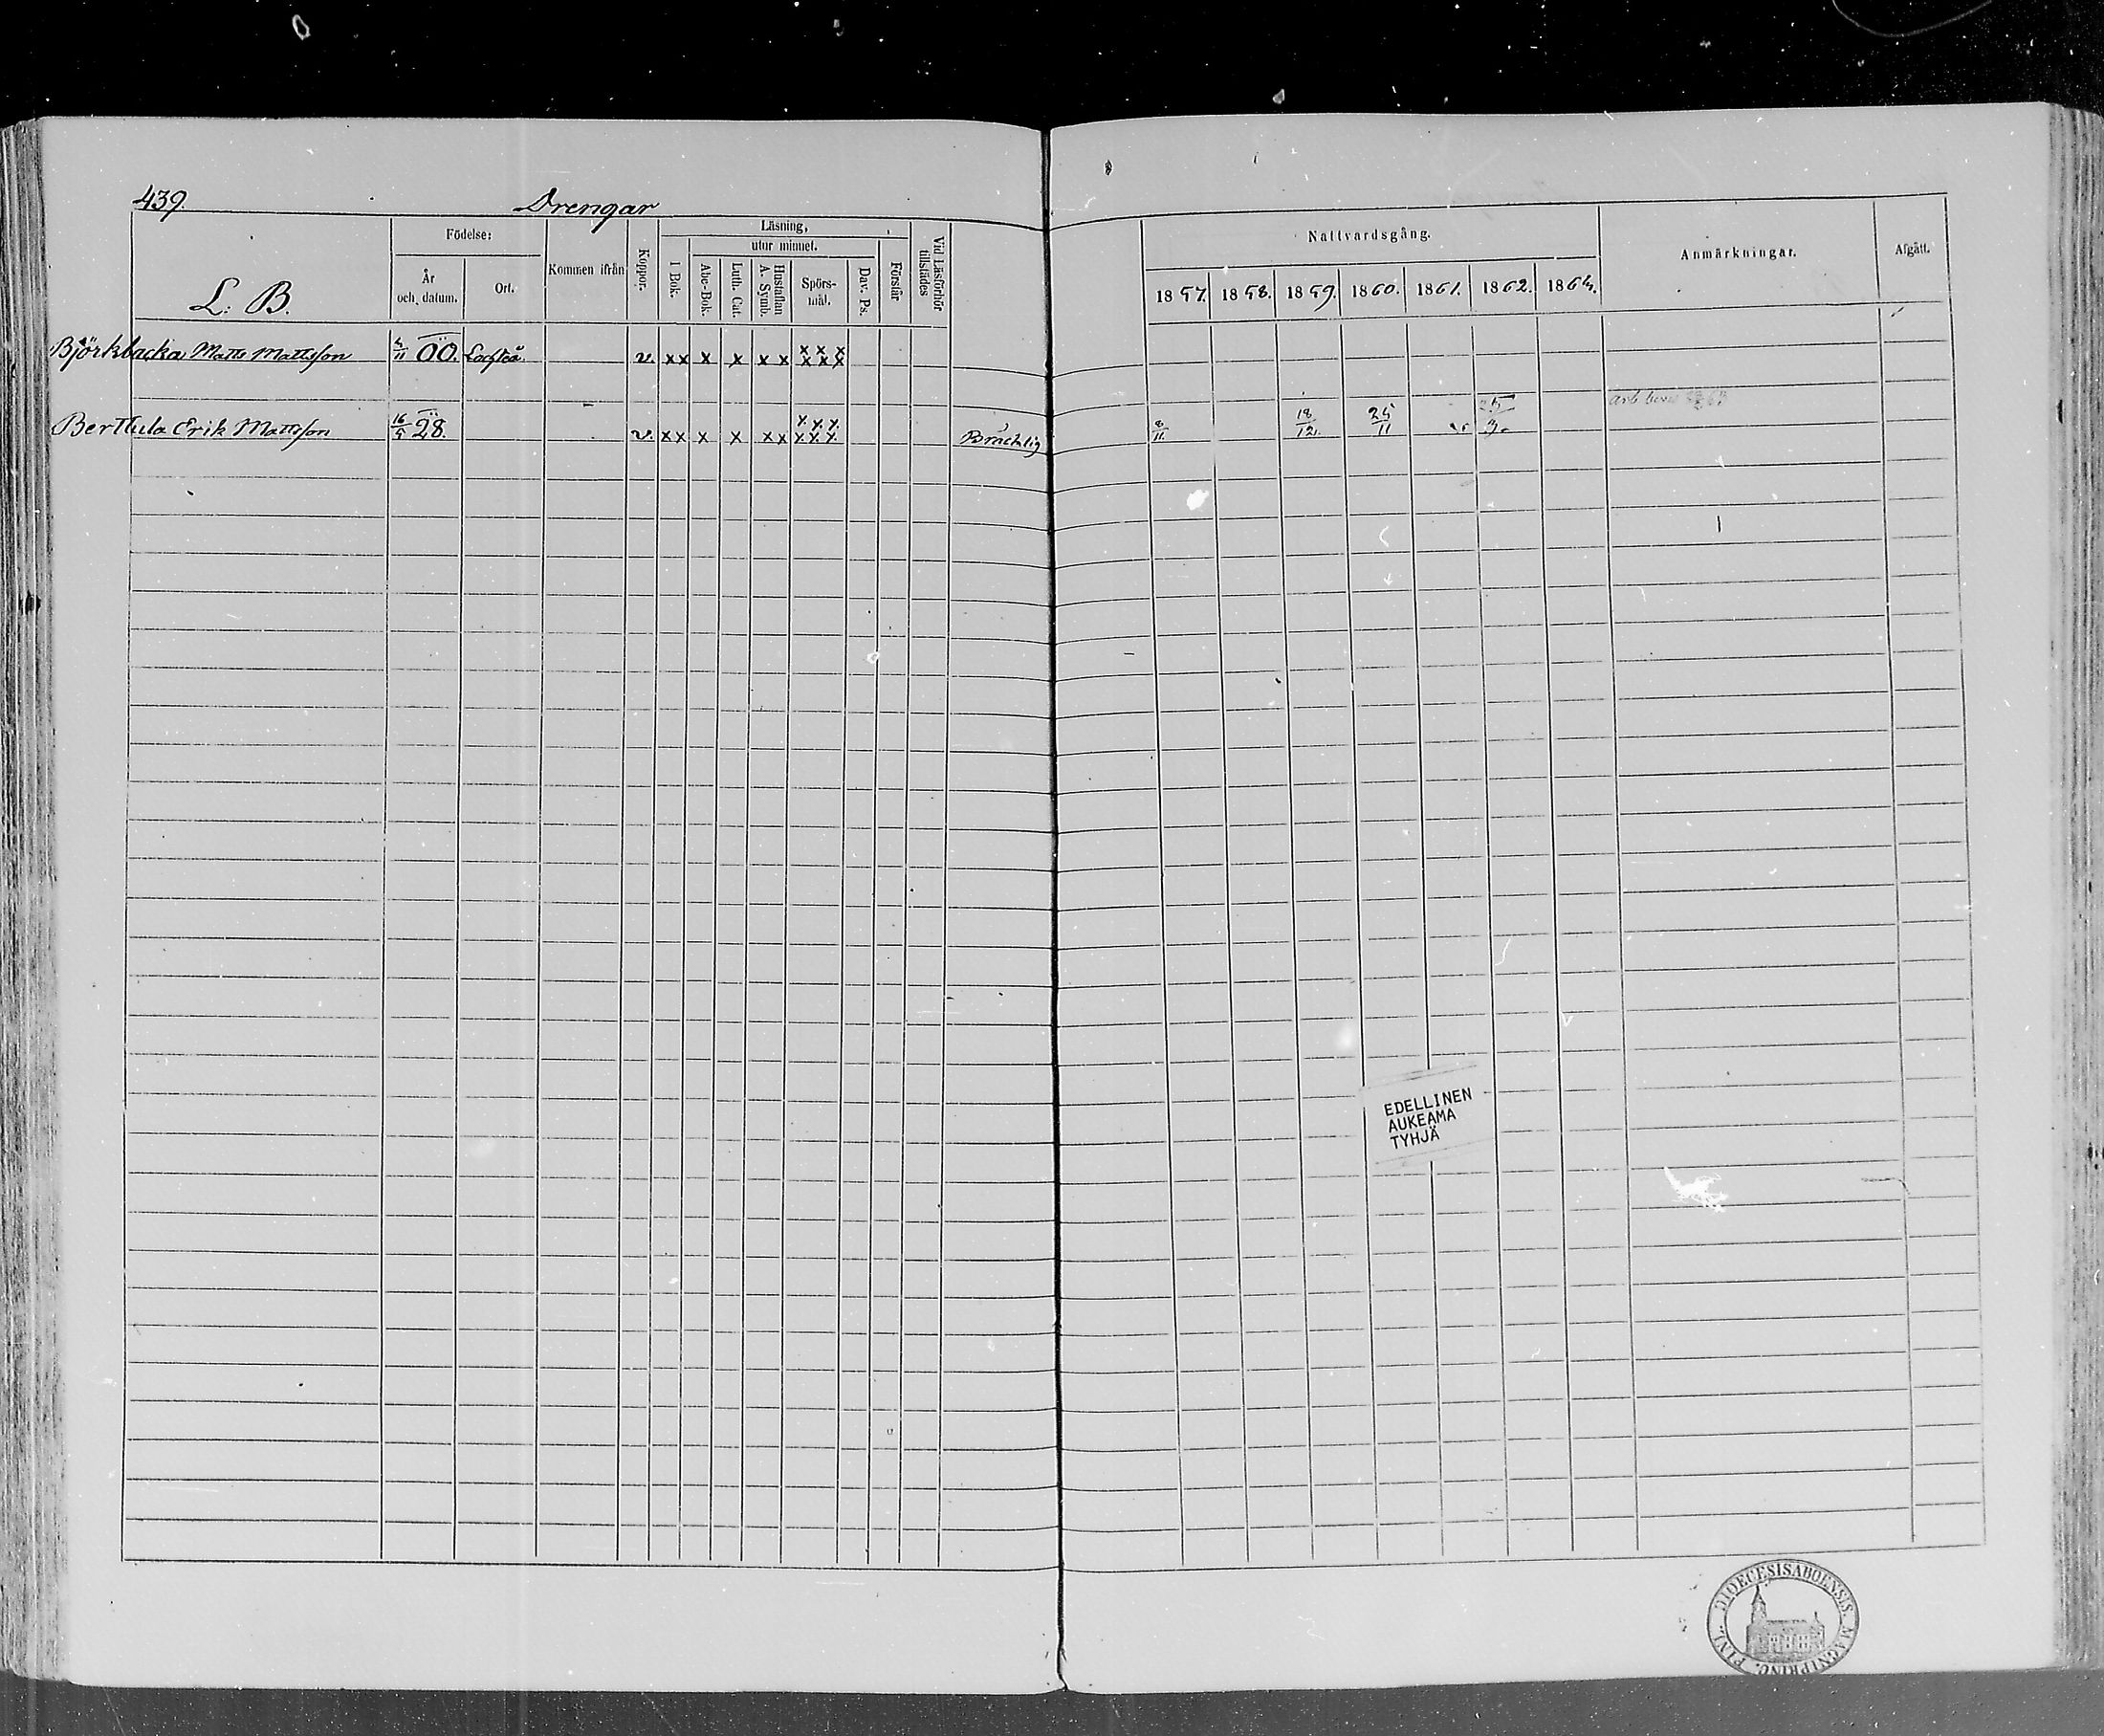 439.
Drengar
L. B.
Födelse:
År
och datum.
Ort.
Kommen ifrån
Koppor.
Läsning,
I Bok.
utur minnet.
Abc-Bok.
Luth. Cat.
Hustaflan
A. Symb.
Spörs-
mål.
Dav. Ps.
Förstår
Vid Läsförhör
tillstädes
Nattvardsgång.
1857. 1858. 1859. 1860. 1861. 1862. 1864.
Anmärkningar.
Afgått.
Björkbacka Matts Mattsson 4/11 00. Lochteå v. xx x x xx xxx
xxx
Berttula Erik Mattsson 16/5 28. v. xx x x xx xxx
xxx Bräcklig 8/11 18/12. 25/11 25/3.
EDELLINEN
AUKEAMA
TYHJÄ
DIOECESIS ABOENSIS MAGNI PRINC. FINL.